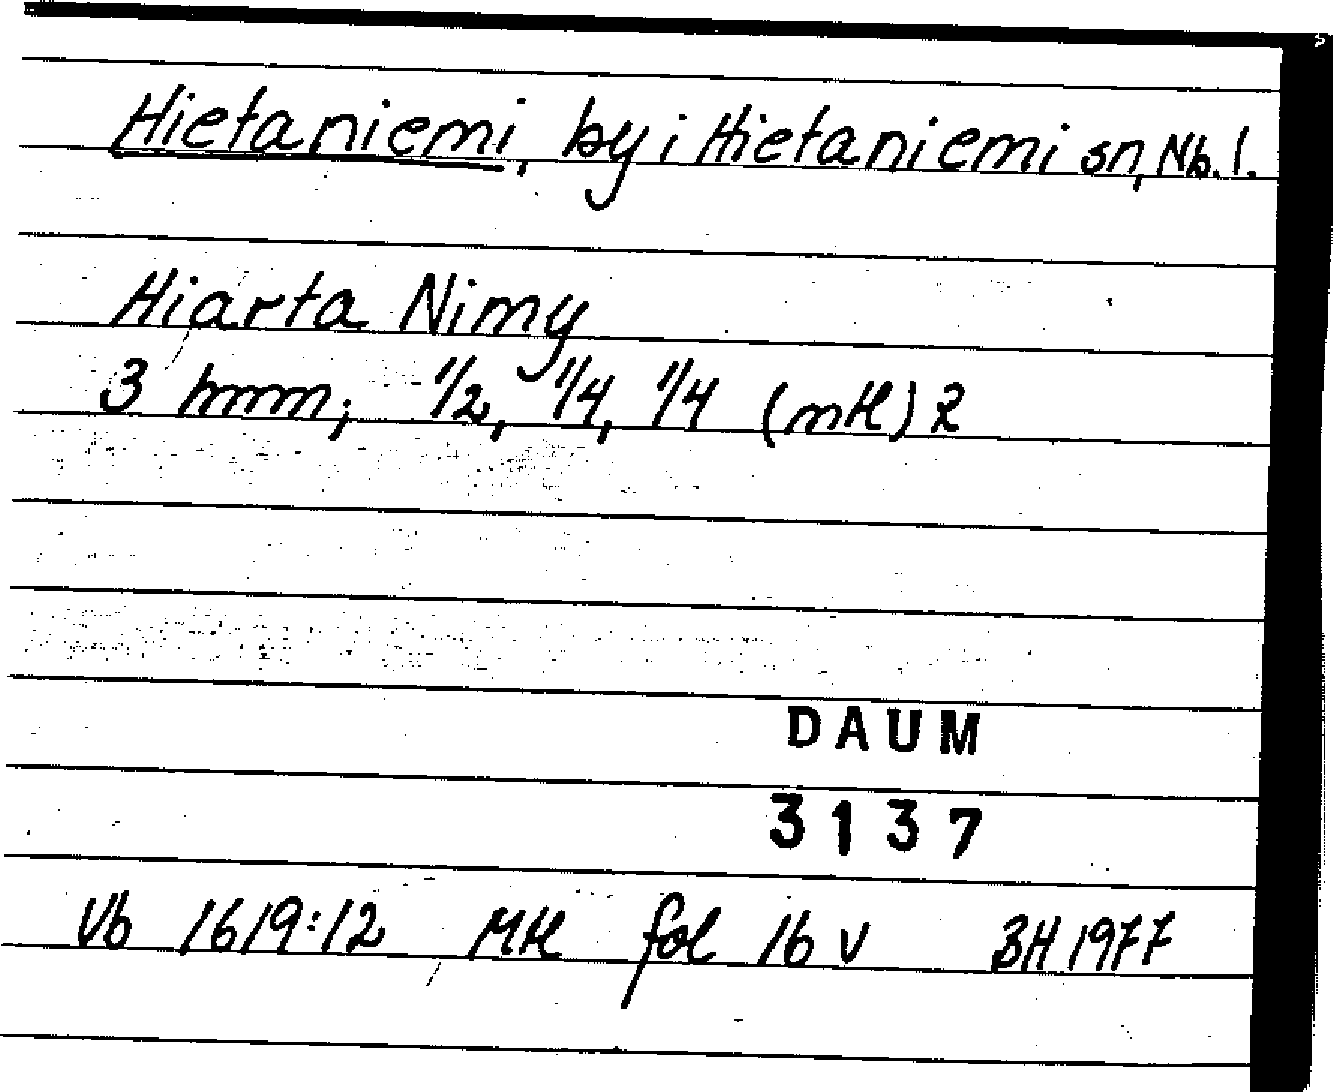 Hietaniemi, by i Hietaniemi sn, Nb. l.
Hiarta Nimy
3 hmm; 1/2, 1/4, 1/4 (mtl) R
DAUM
3137
Vb 1619:12 Mtl fol 16 v BH 1977